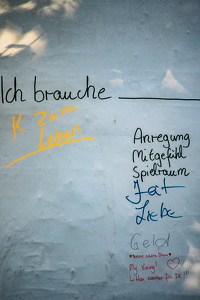 Ich brauche
K. zum
Leben
Anregung
Mitgefühl
Spielraum
Zeit
Liebe
Geld
My Vang!